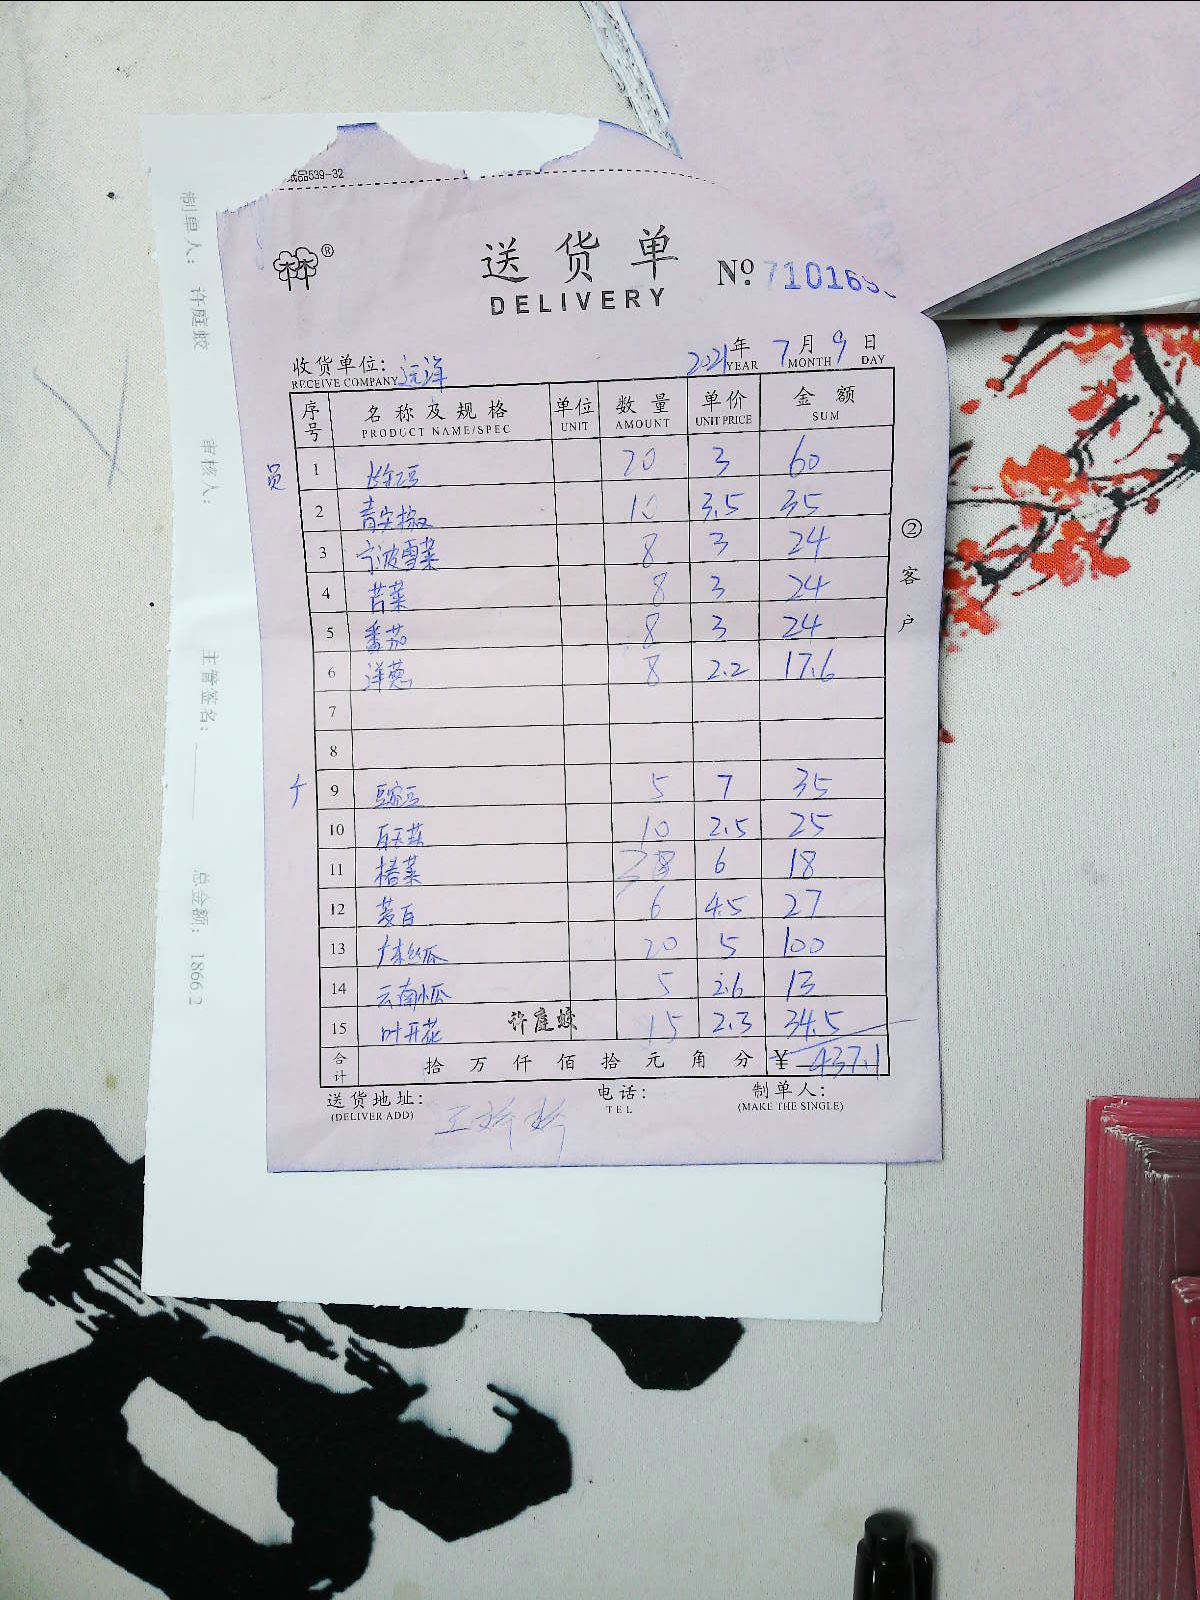 纸品539-32
®
送货单
DELIVERY
№ 710165
收货单位: 远洋
RECEIVE COMPANY
2021年 7月 9日
YEAR MONTH DAY
序号 名称及规格 单位 数量 单价 金额
PRODUCT NAME/SPEC UNIT AMOUNT UNIT PRICE SUM
员 1 长豇豆 20 3 60
2 青尖椒 10 3.5 35
3 宁波雪菜 8 3 24
4 苔菜 8 3 24
5 番茄 8 3 24
6 洋葱 8 2.2 17.6
7
8
9 豌豆 5 7 35
10 10 2.5 25
11 椿菜 3 6 18
12 茭白 6 4.5 27
13 本丝瓜 20 5 100
14 云南小瓜 5 2.6 13
15 叶开花 许庭蛟 15 2.3 34.5
合计 拾万仟佰拾元角分 ¥ 437.1
送货地址: 电话: 制单人:
(DELIVER ADD) TEL (MAKE THE SINGLE)
②客户
制单人: 许庭蛟
审核人:
主管签名:
总金额: 1866.2